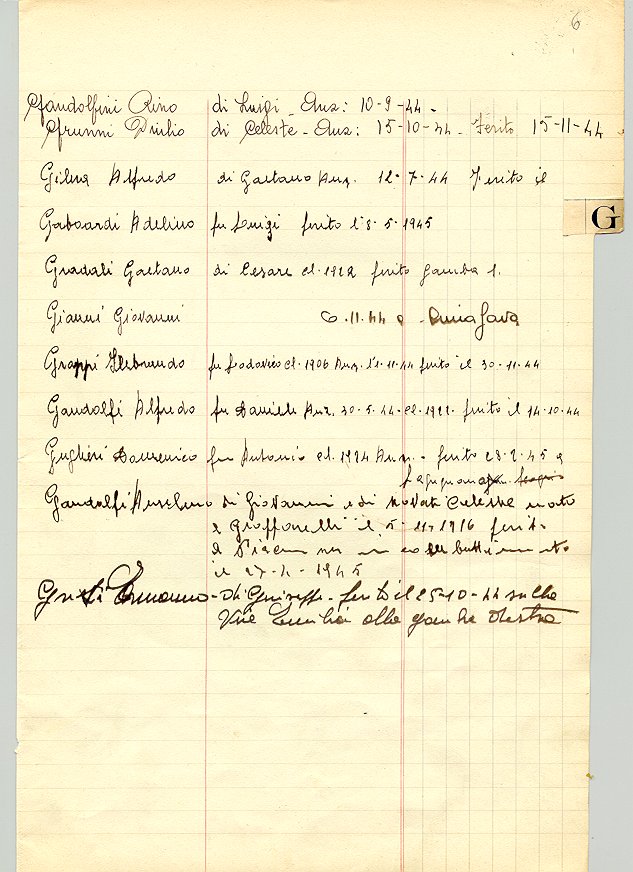 6
Gandolfini Rino di Luigi - Anz: 10-9-44 -
Grunni Duilio di Celeste - Anz: 15-10-44 - Ferito 15-11-44
G
Alfredo di Gaetano Anz. 12-7-44 Ferito il
Gaboardi Adelino fu Luigi ferito l'8-5-1945
Gradali Gaetano di Cesare cl. 1922 ferito gamba
Gianni Giovanni 6.11.44 a
Grappi Ildebrando fu Lodovico cl. 1906 Anz. l'1-11-44 ferito il 30-11-44
Gandolfi Alfredo fu Daniele Anz. 30-5-44 - cl. 1922 - ferito il 14-10-44
Guglieri Domenico fu Antonio cl. 1924 Anz. - ferito 23-2-45 a
Gandolfi Anselmo di Giovanni e di Novati Celeste nato
a il 5-11-1916 ferito
a in
il 27-4-1945
Ermanno - di Giuseppe - ferito il 25-10-44 sulla
Via Emilia alla gamba destra